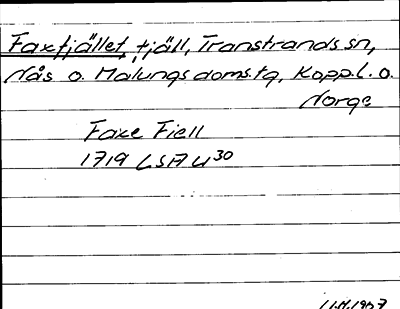 Faxfjället, fjäll, Transtrands sn,
Nås o. Malungs doms.fq, Koppl. o.
Norge
Faxe Fiell
1719 LSA U30